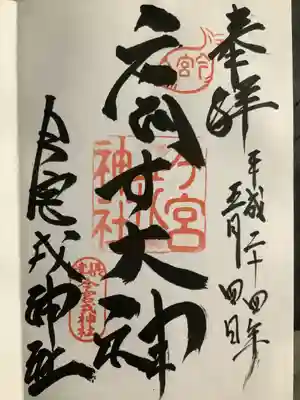 奉拝
平成二十四年
五月四日
今宮
大神
今宮戎神社
今宮戎神社
今宮戎神社